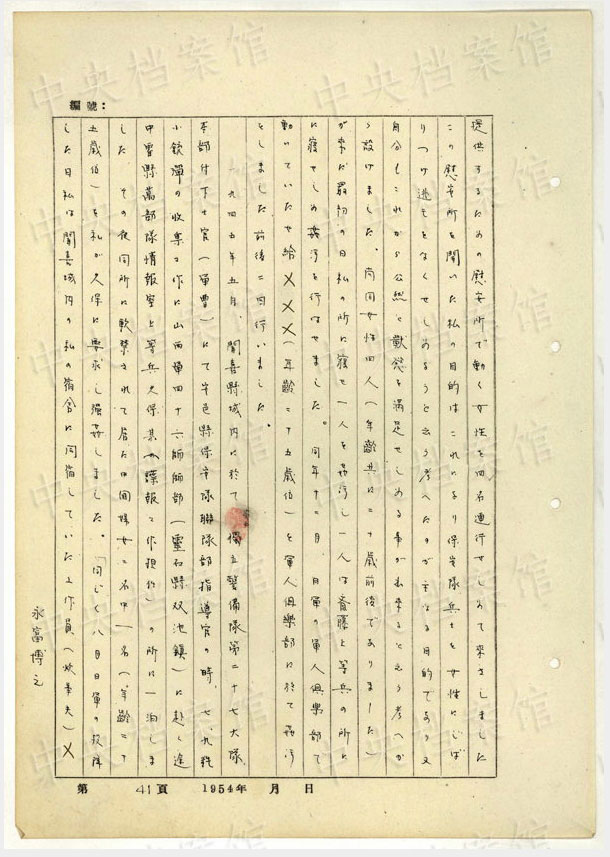 編號：
提供するための慰安所で働く女性を四名連行せしめて来さしました
この慰安所を開いた私の目的はこれにより保安隊兵士を女性にしば
りつけ逃亡をなくせしめようと云う考へたのが主なる目的であり又
自分もこれから公然と獣慾を満足せしめる事が出来ると云う考へか
ら設けました。尚同女性四人（年齢共に二十歳前後でありました）
が来た最初の日私の所に寝せ一人を姦淫し一人は斎藤上等兵の所に
に寝せしめ姦淫を行はせました。同年十二月、日軍の軍人倶楽部で
動いていた女給×××（年齢二十五歳位）を軍人倶楽部に於て姦淫
としました前後二回行いました。
一九四五年五月、聞喜縣城内に於て獨立警備隊第二十七大隊
本部付下士官（軍曹）にて 縣保安隊聯隊部指導官の時、七、九粍
小銃彈の收集工作に山西軍四十六師師部（靈石縣双池鎮）に赴く途
中霍縣萬部隊情報室上等兵久保某（諜報工作担任）の所に一泊しま
した その夜同所に軟禁されて居た中国婦女二名中一名（年齢二十
五歳位）を私が久保に要求し強姦しました。「同じく八月日軍の投降
した日私は聞喜城内の私の宿舎に同宿していた工作員（炊事夫）×
永富博之
第 41頁 1954年 月 日
中央档案馆